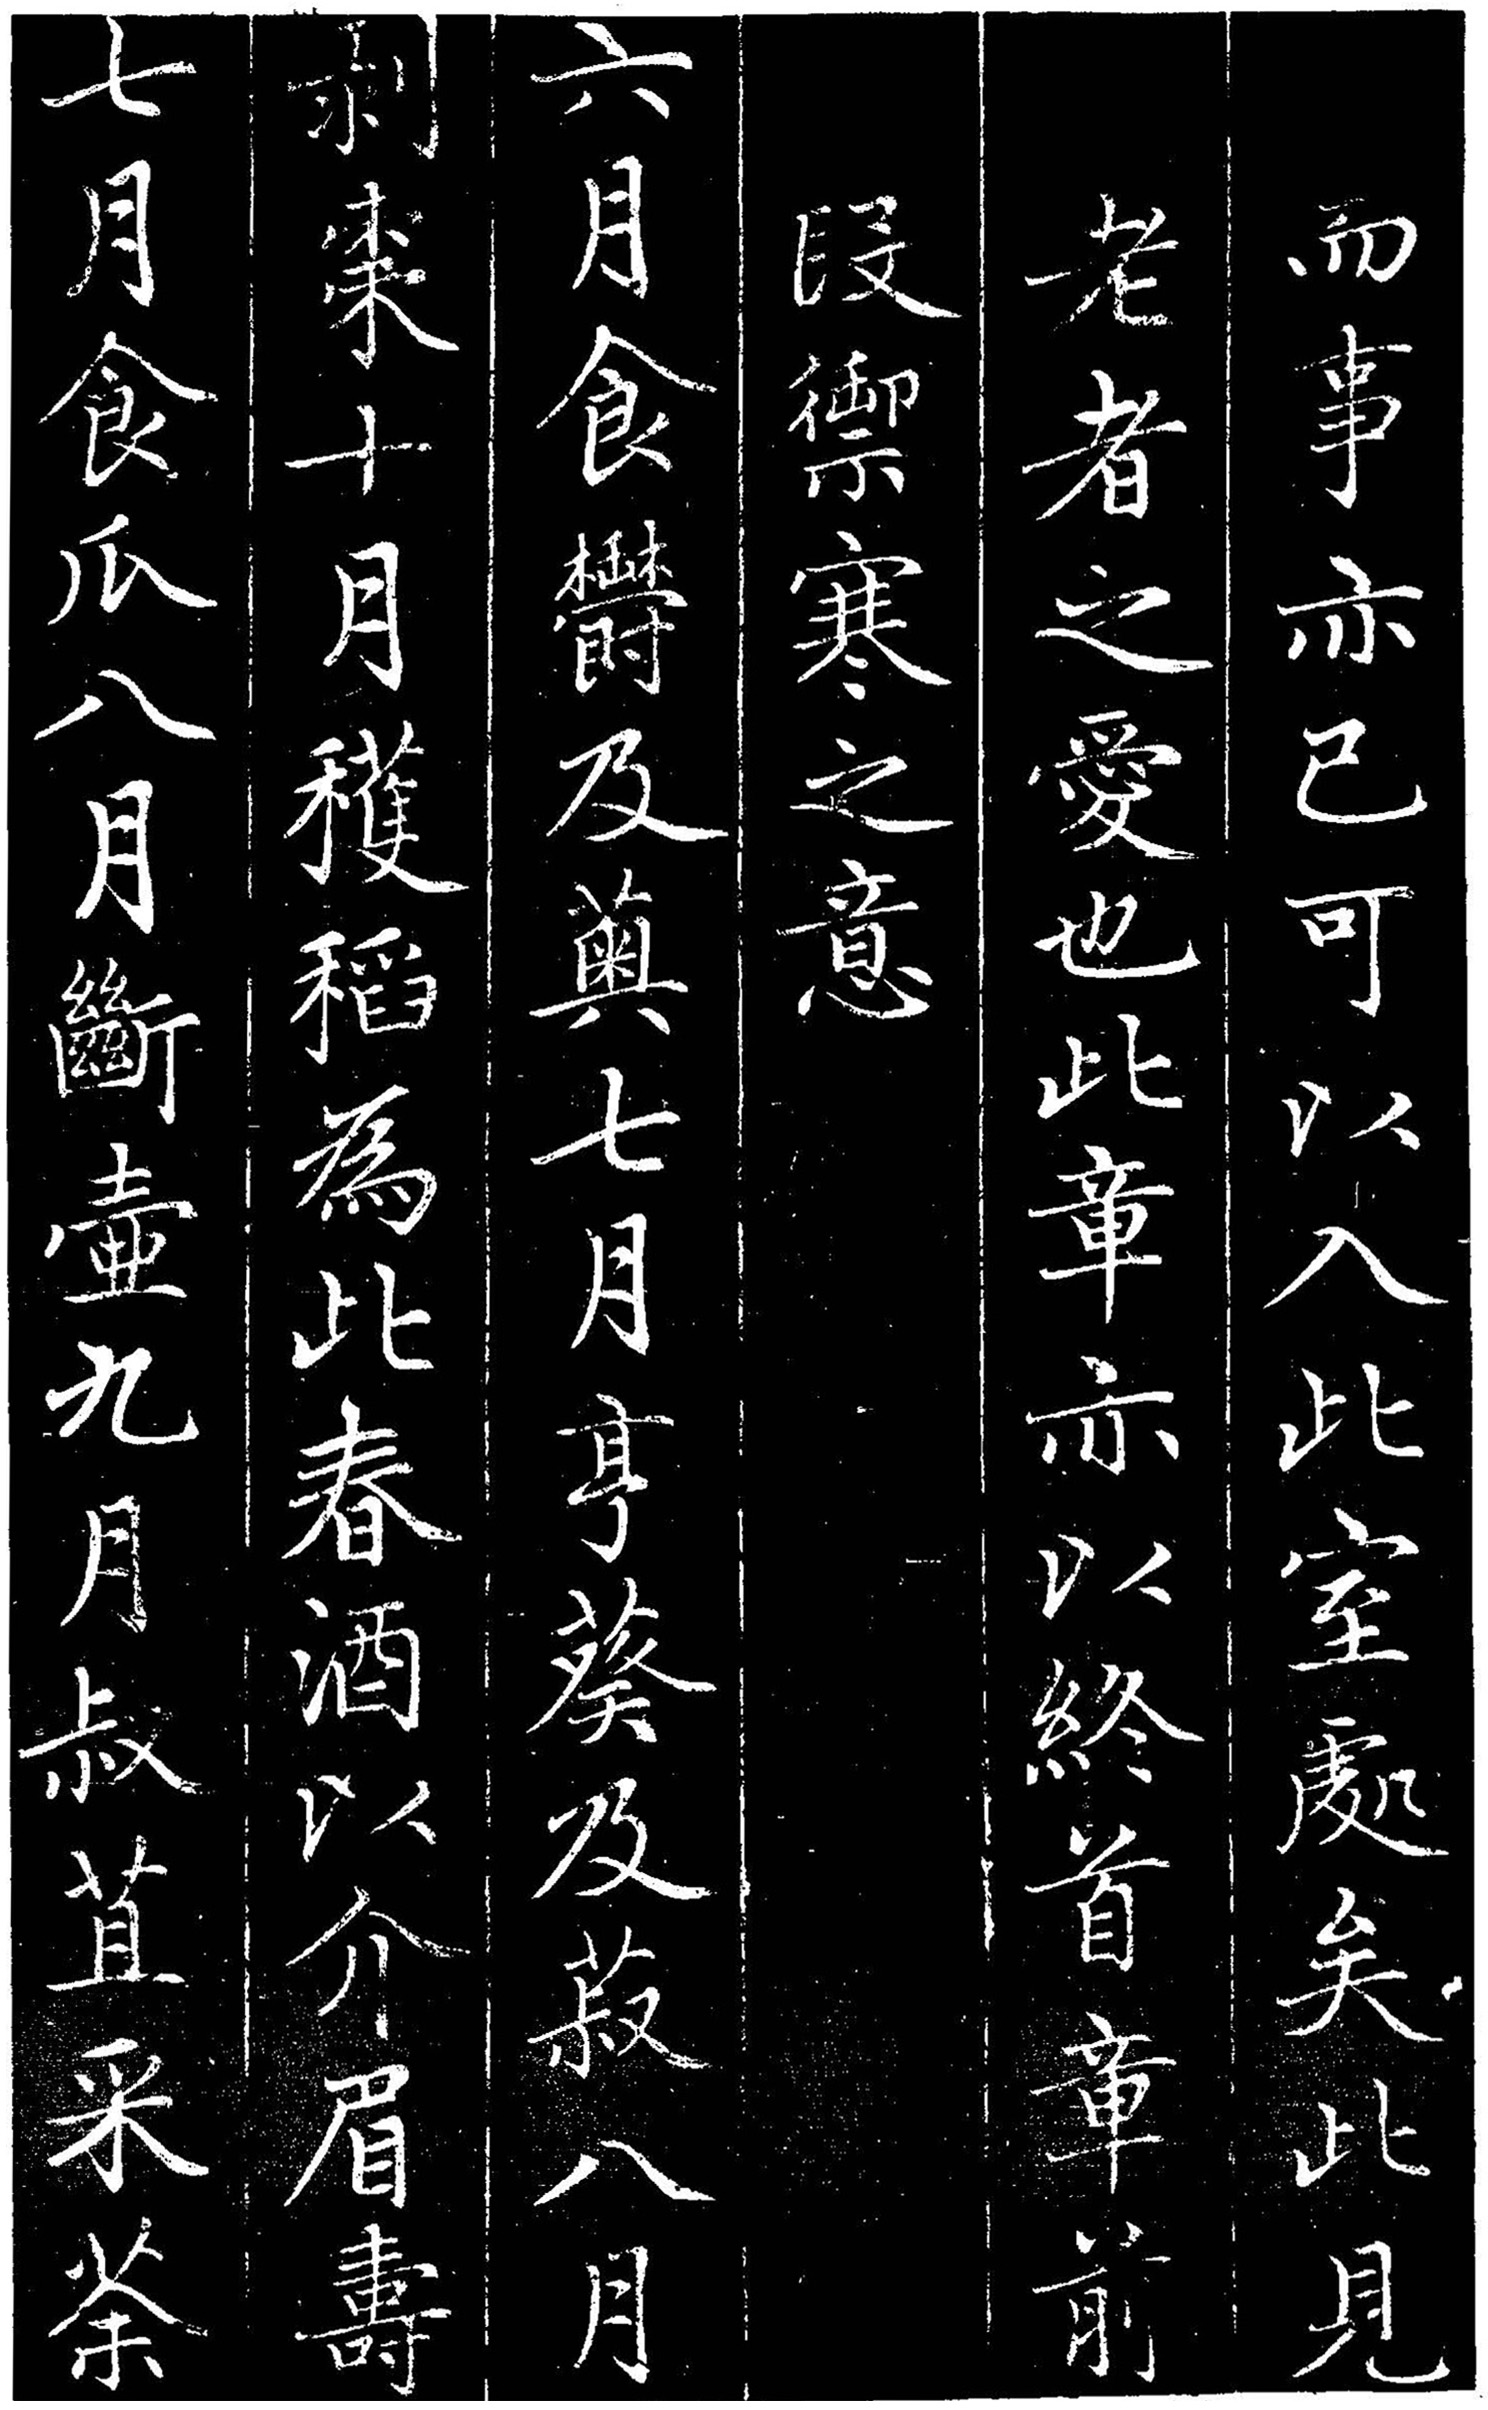 而事亦已可以入此室處矣此見
老者之愛也此章亦以終首章前
段禦寒之意
六月食欝及薁七月亨葵及菽八月
剥棗十月穫稻為此春酒以介眉壽
七月食瓜八月斷壷九月叔苴采荼